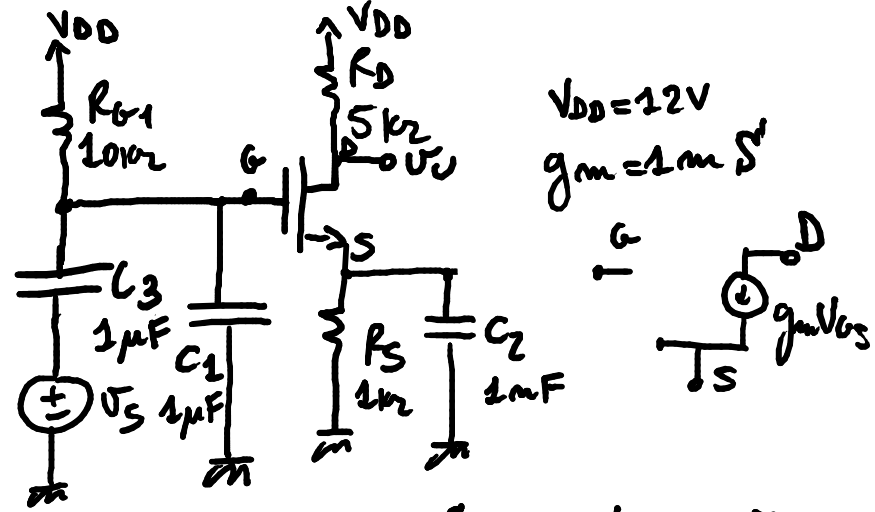 VDD
RG1
10kΩ
VDD
RD
5kΩ
D
υo
G
S
C3
1µF
υS
C1
1µF
RS
1kΩ
C2
1mF
VDD=12V
gm=1mS
G
D
gmVGS
S